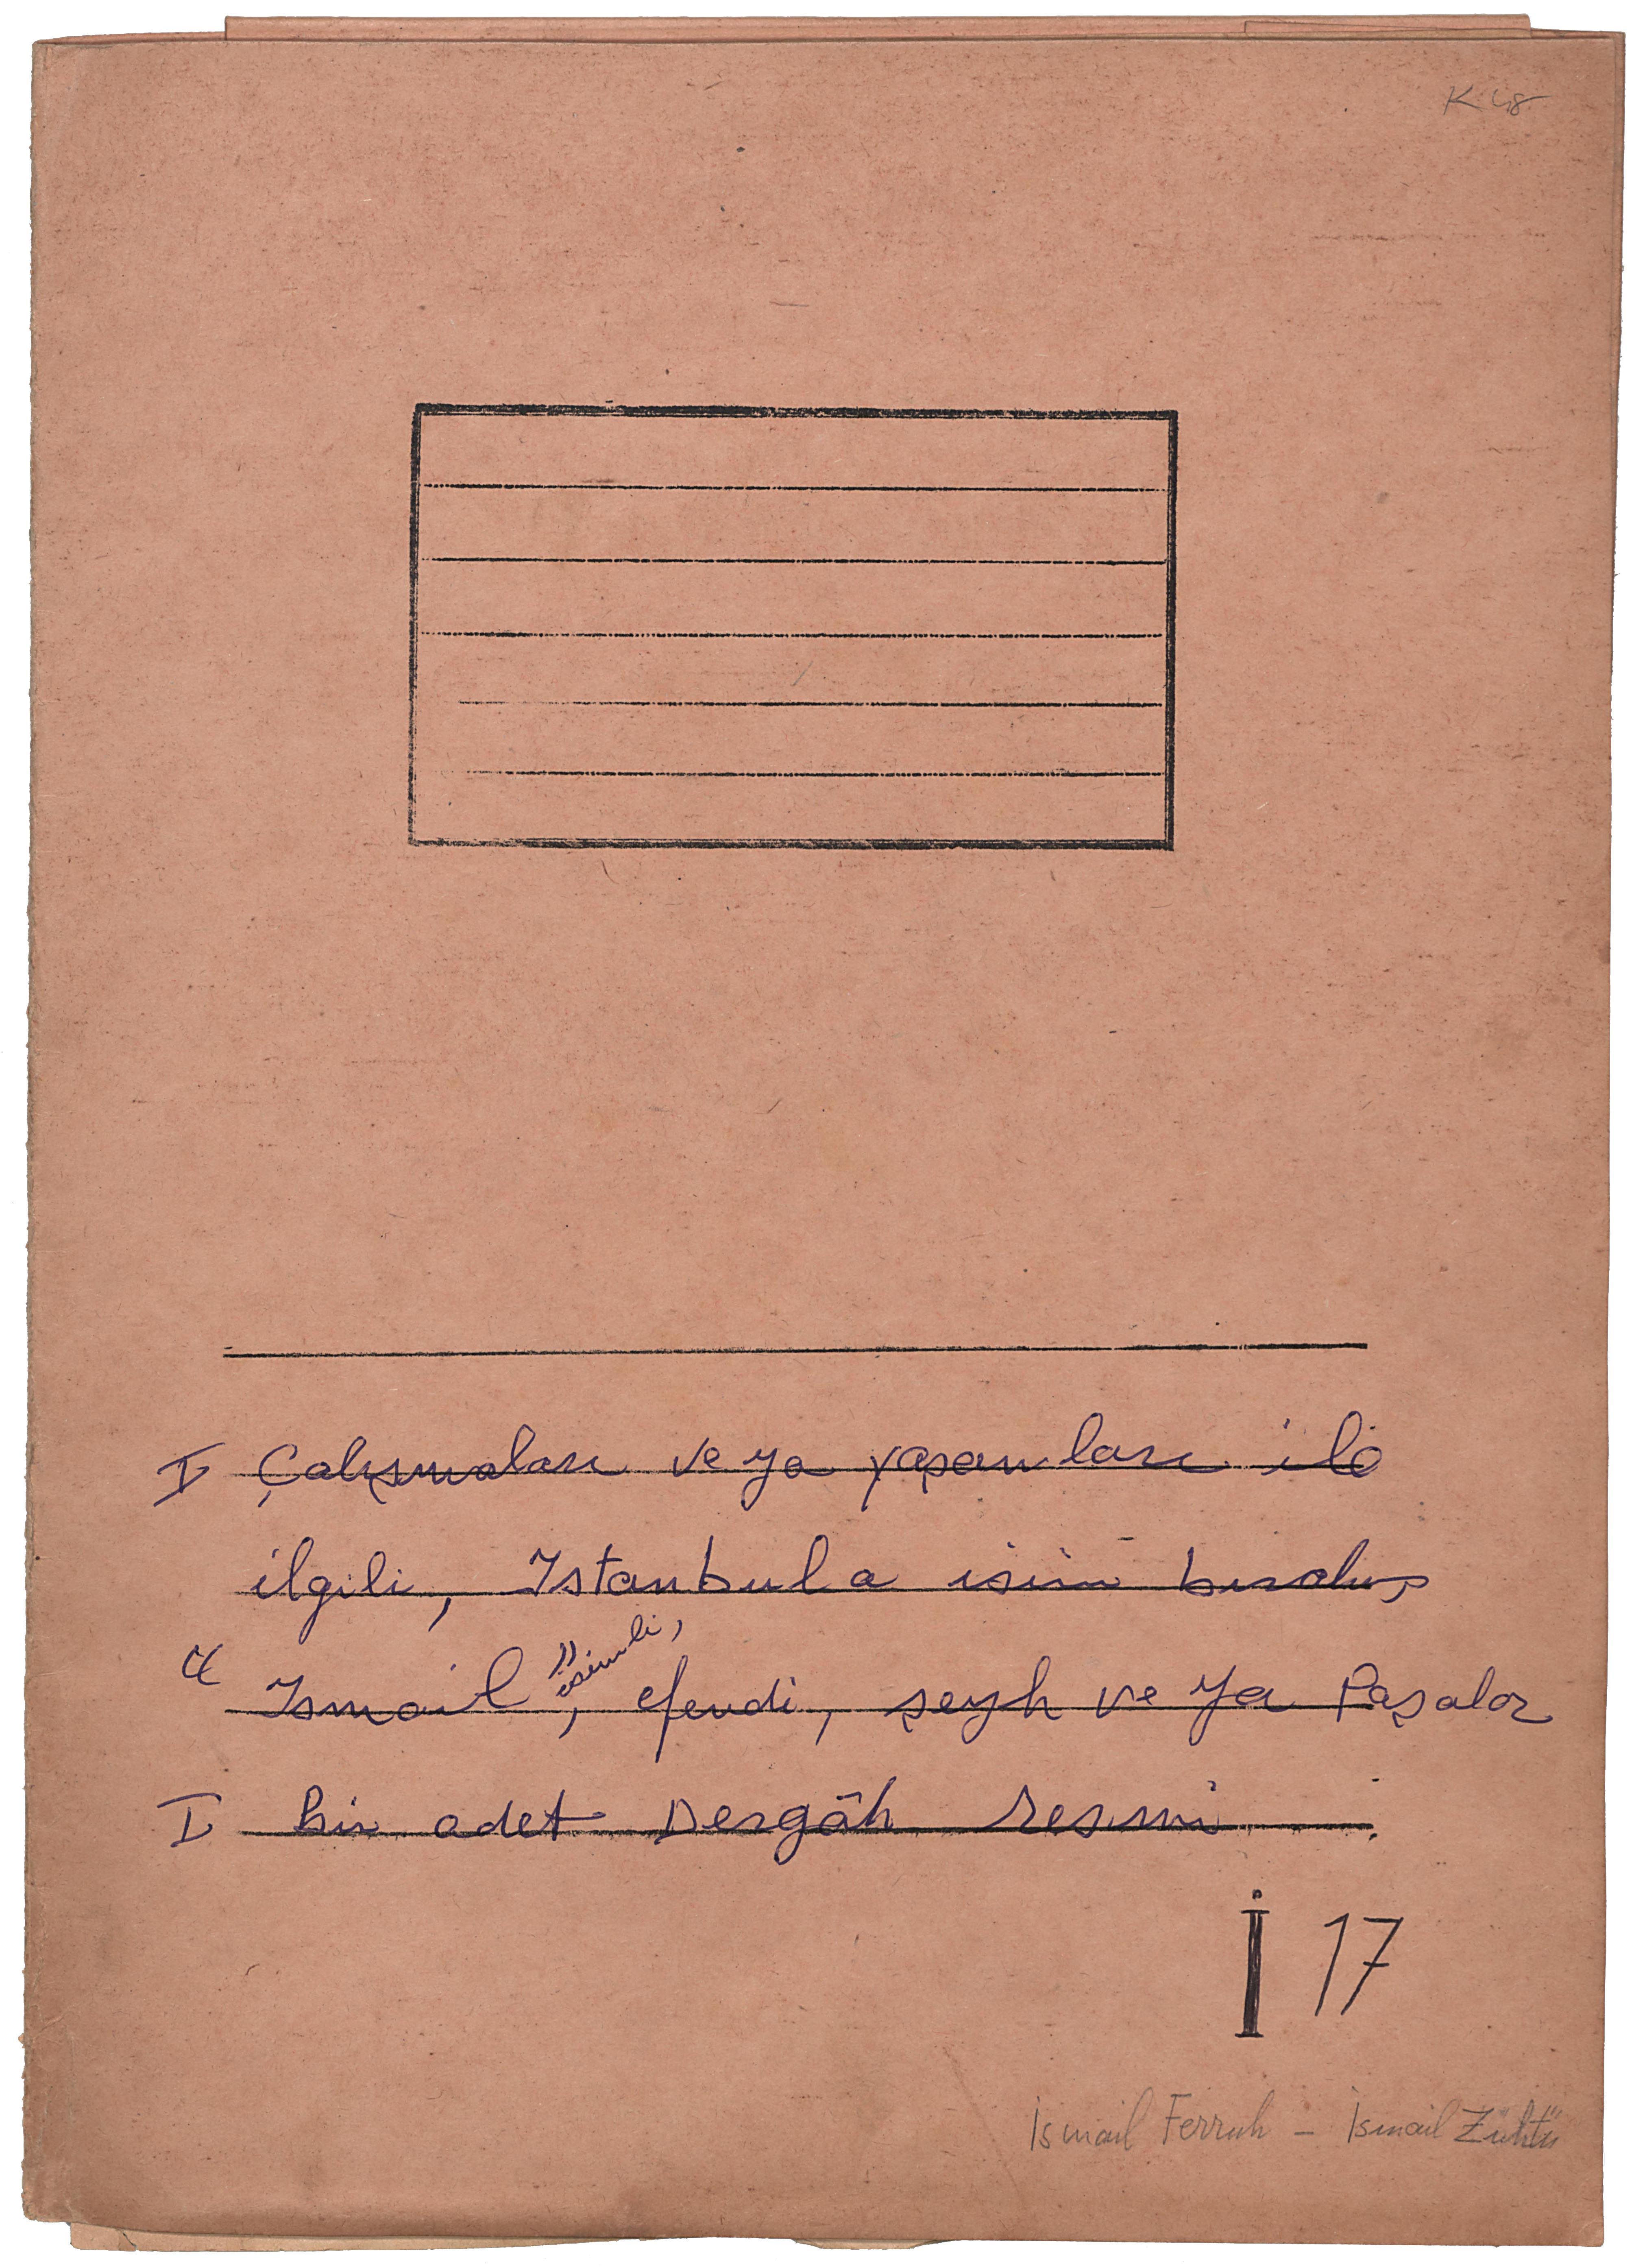 K 48
I Çalışmaları ve ya yaşamları ile
ilgili, Istanbula isim bırakmış
" Ismail " isimli, efendi, şeyh ve ya Paşalar
I bir adet Dergâh resmi .
İ 17
İsmail Ferruh – İsmail Zühtü